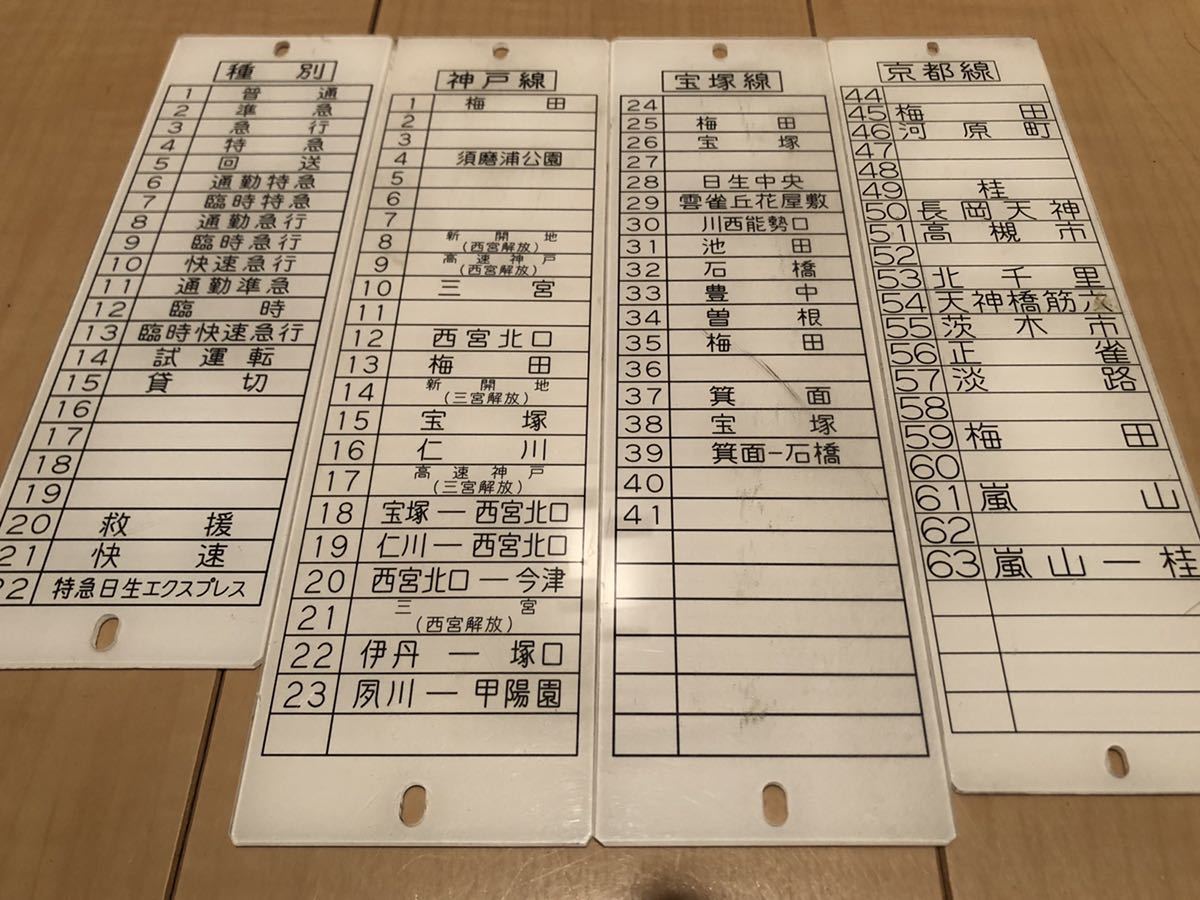 種別
1 普通
2 準急
3 急行
4 特急
5 回送
6 通勤特急
7 臨時特急
8 通勤急行
9 臨時急行
10 快速急行
11 通勤準急
12 臨時
13 臨時快速急行
14 試運転
15 貸切
16
17
18
19
20 救援
21 快速
22 特急日生エクスプレス
神戸線
1 梅田
2
3
4 須磨浦公園
5
6
7
8 新開地
(西宮解放)
9 高速神戸
(西宮解放)
10 三宮
11
12 西宮北口
13 梅田
14 新開地
(三宮解放)
15 宝塚
16 仁川
17 高速神戸
(三宮解放)
18 宝塚―西宮北口
19 仁川―西宮北口
20 西宮北口―今津
21 三宮
(西宮解放)
22 伊丹―塚口
23 夙川―甲陽園
宝塚線
24
25 梅田
26 宝塚
27
28 日生中央
29 雲雀丘花屋敷
30 川西能勢口
31 池田
32 石橋
33 豊中
34 曽根
35 梅田
36
37 箕面
38 宝塚
39 箕面―石橋
40
41
京都線
44
45 梅田
46 河原町
47
48
49 桂
50 長岡天神
51 高槻市
52
53 北千里
54 天神橋筋六
55 茨木市
56 正雀
57 淡路
58
59 梅田
60
61 嵐山
62
63 嵐山―桂